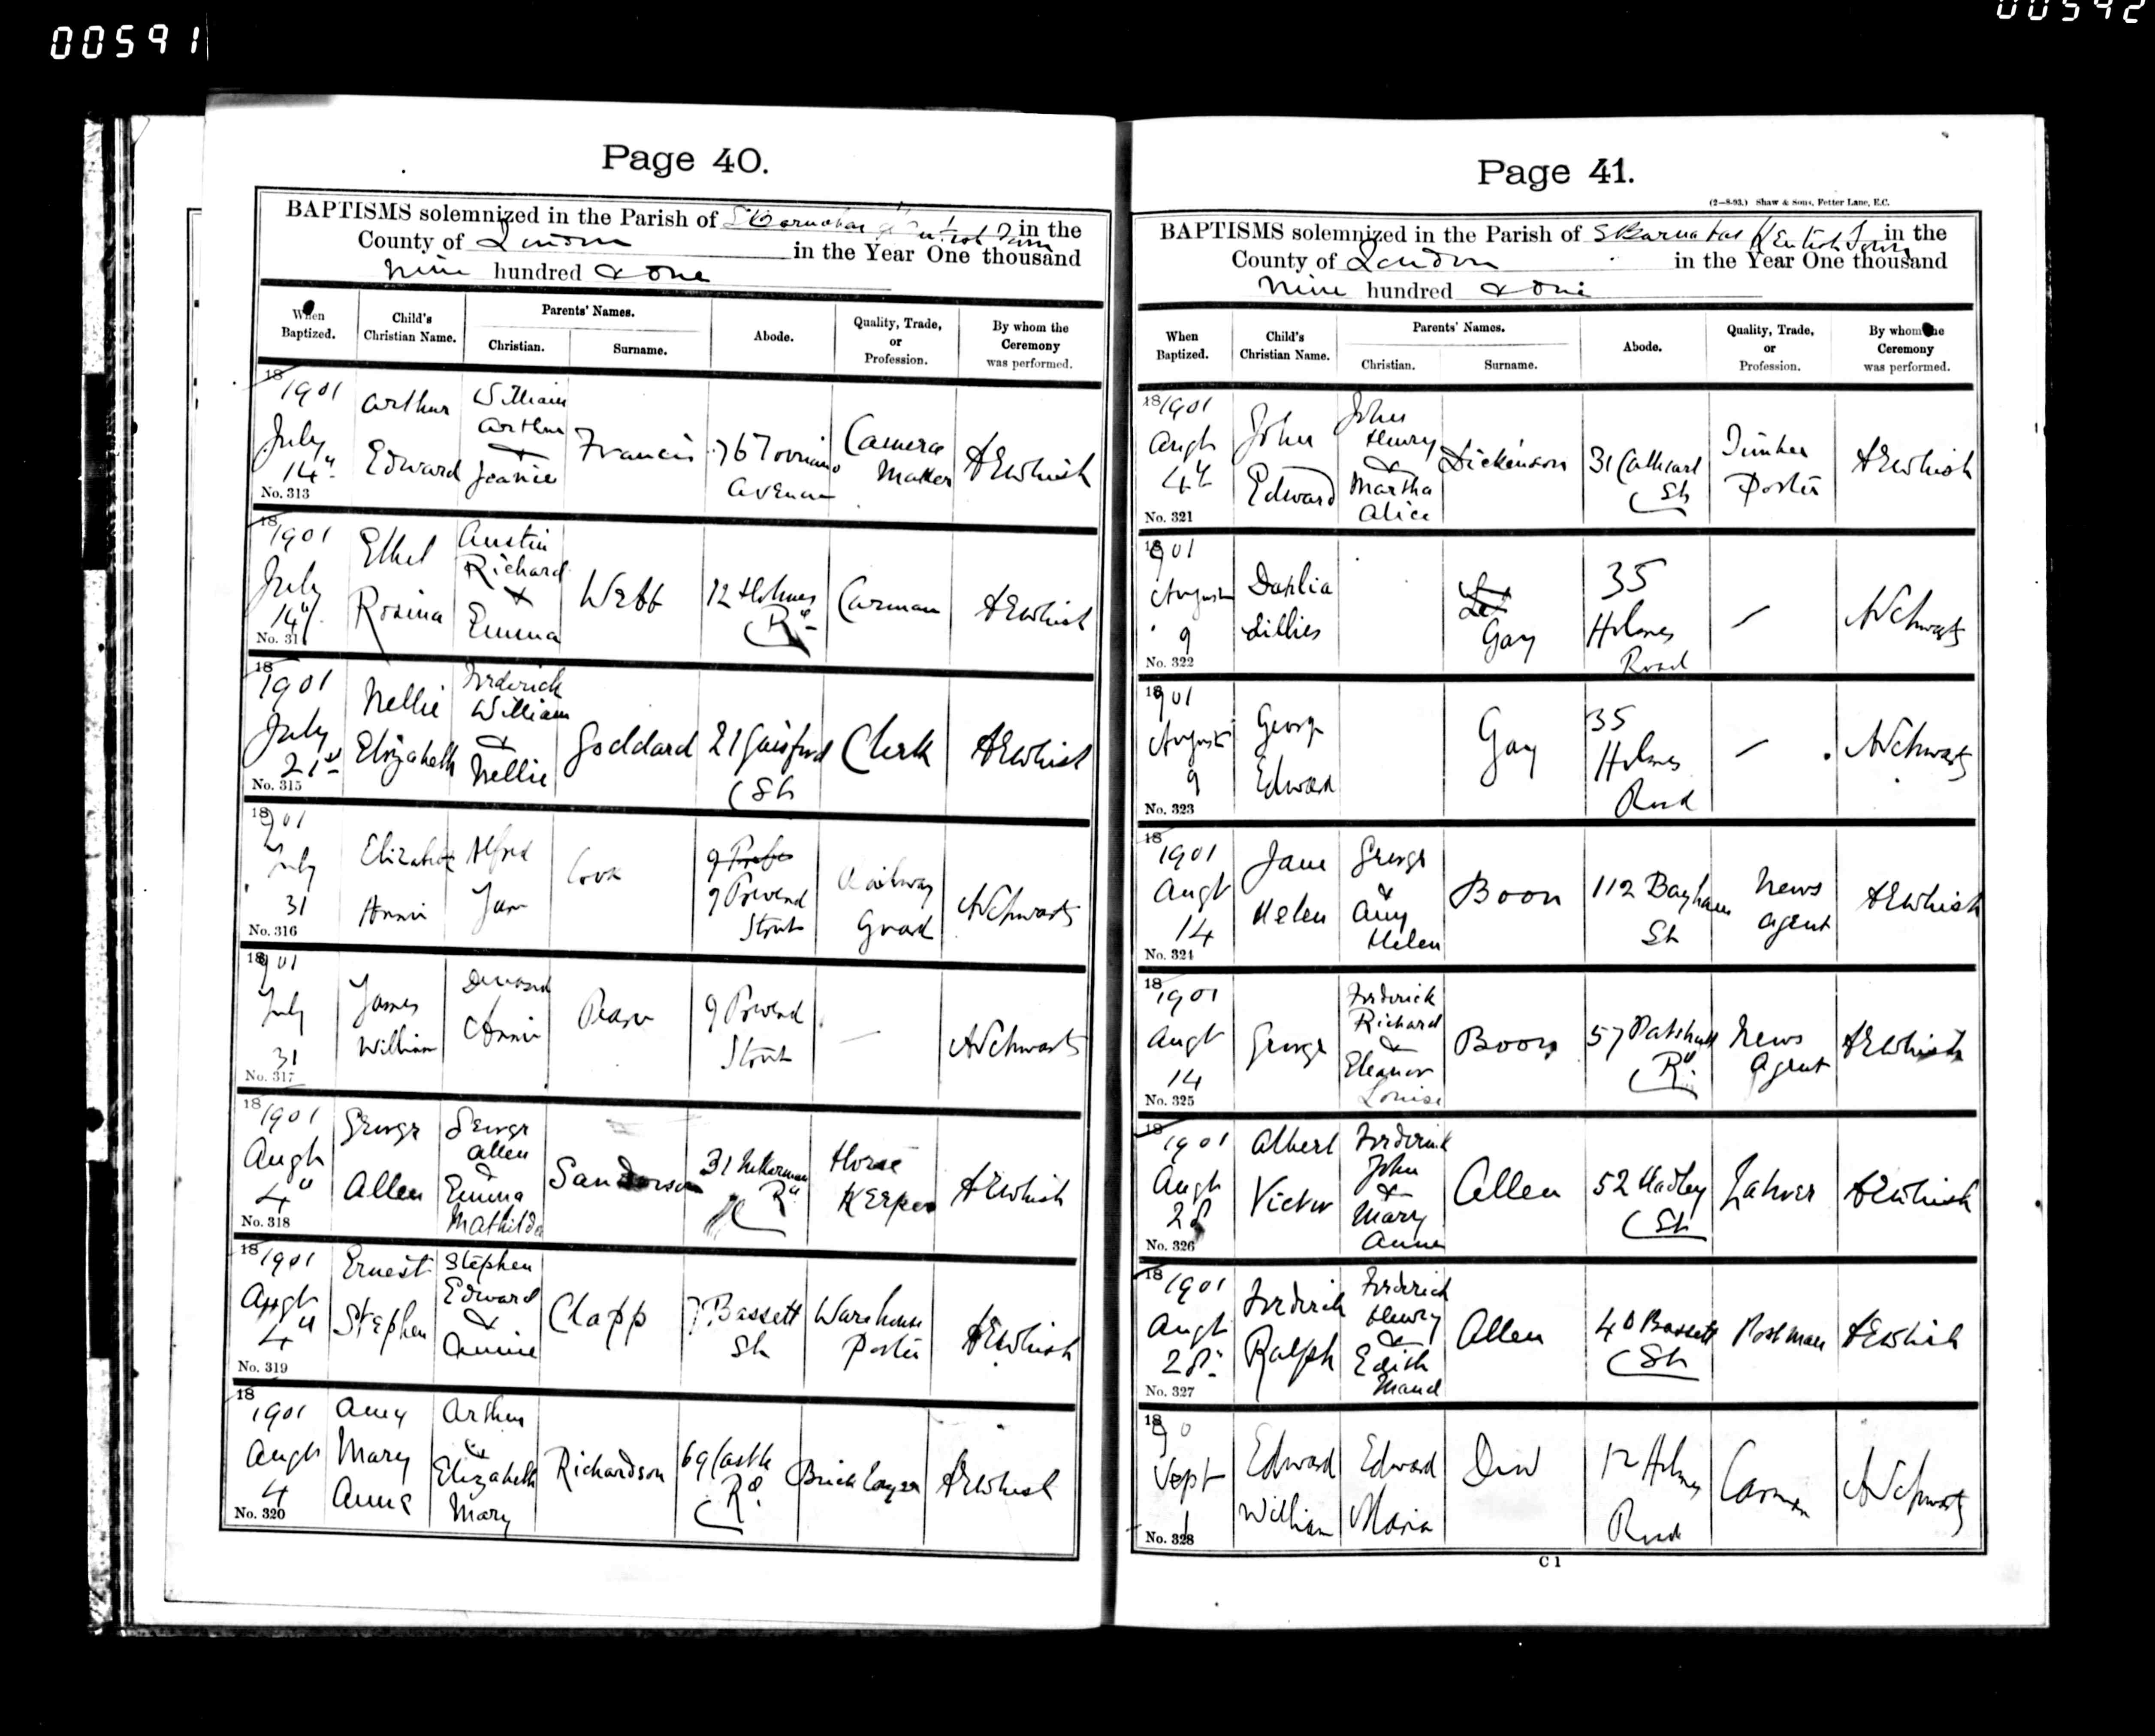 00591
00592
Page 40.
BAPTISMS solemnized in the Parish of St Barnabas Kentish Town in the
County of London in the Year One thousand
nine hundred & one
When Baptized. Child's Christian Name. Parents' Names. Christian. Surname. Abode. Quality, Trade, or Profession. By whom the Ceremony was performed.
18 1901 July 14" Arthur Edward William Arthur & Jeanie Francis 76 Torriano Avenue Camera Maker AEWhish
No. 313
18 1901 July 14" Ethel Rosina Austin Richard & Emma Webb 12 Holmes Rd Carman AEWhish
No. 31
18 1901 July 21st Nellie Elizabeth Frederick William & Nellie Goddard 21 Gaisford St Clerk AEWhish
No. 315
18 901 July 31 Elizabeth Annie Alfred Jane Cook 9 9 Prebend Street Railway Guard ASchwartz
No. 316
18 901 July 31 James William Annie 9 Prebend Street — ASchwartz
No. 317
18 1901 Augt 4" George Allen George Allen & Emma Mathilda Sanderson 31 Inkerman Rd Horse Keeper AEWhish
No. 318
18 1901 Augt 4" Ernest Stephen Stephen Edward & Annie Clapp 7 Bassett St Warehouse Porter AEWhish
No. 319
18 1901 Augt 4 Amy Mary Anna Arthur & Elizabeth Mary Richardson 69 Castle Rd Bricklayer AEWhish
No. 320
Page 41.
(2—8-93.) Shaw & Sons, Fetter Lane, E.C.
BAPTISMS solemnized in the Parish of St Barnabas Kentish Town in the
County of London in the Year One thousand
nine hundred & one
When Baptized. Child's Christian Name. Parents' Names. Christian. Surname. Abode. Quality, Trade, or Profession. By whom the Ceremony was performed.
18 1901 Augt 4th John Edward John Henry & Martha Alice Dickenson 31 Cathcart St Timber Porter AEWhish
No. 321
18 901 August 9 Dahlia Lillies Gay 35 Holmes Road — ASchwartz
No. 322
18 901 August 9 George Edward Gay 35 Holmes Road — ASchwartz
No. 323
18 1901 Augt 14 Jane Helen George & Amy Helen Boon 112 Bayham St News agent AEWhish
No. 324
18 1901 Augt 14 George Frederick Richard & Eleanor Louise Boon 57 Patshull Rd News Agent AEWhish
No. 325
18 1901 Augt 28 Albert Victor Frederick John & Mary Anne Allen 52 Hadley St AEWhish
No. 326
18 1901 Augt 28" Frederick Ralph Frederick Henry & Edith Maud Allen 40 Bassett St Postman AEWhish
No. 327
18 90 Sept 1 Edward William Edward Maria 12 Holmes Road Carman ASchwartz
No. 328
C 1